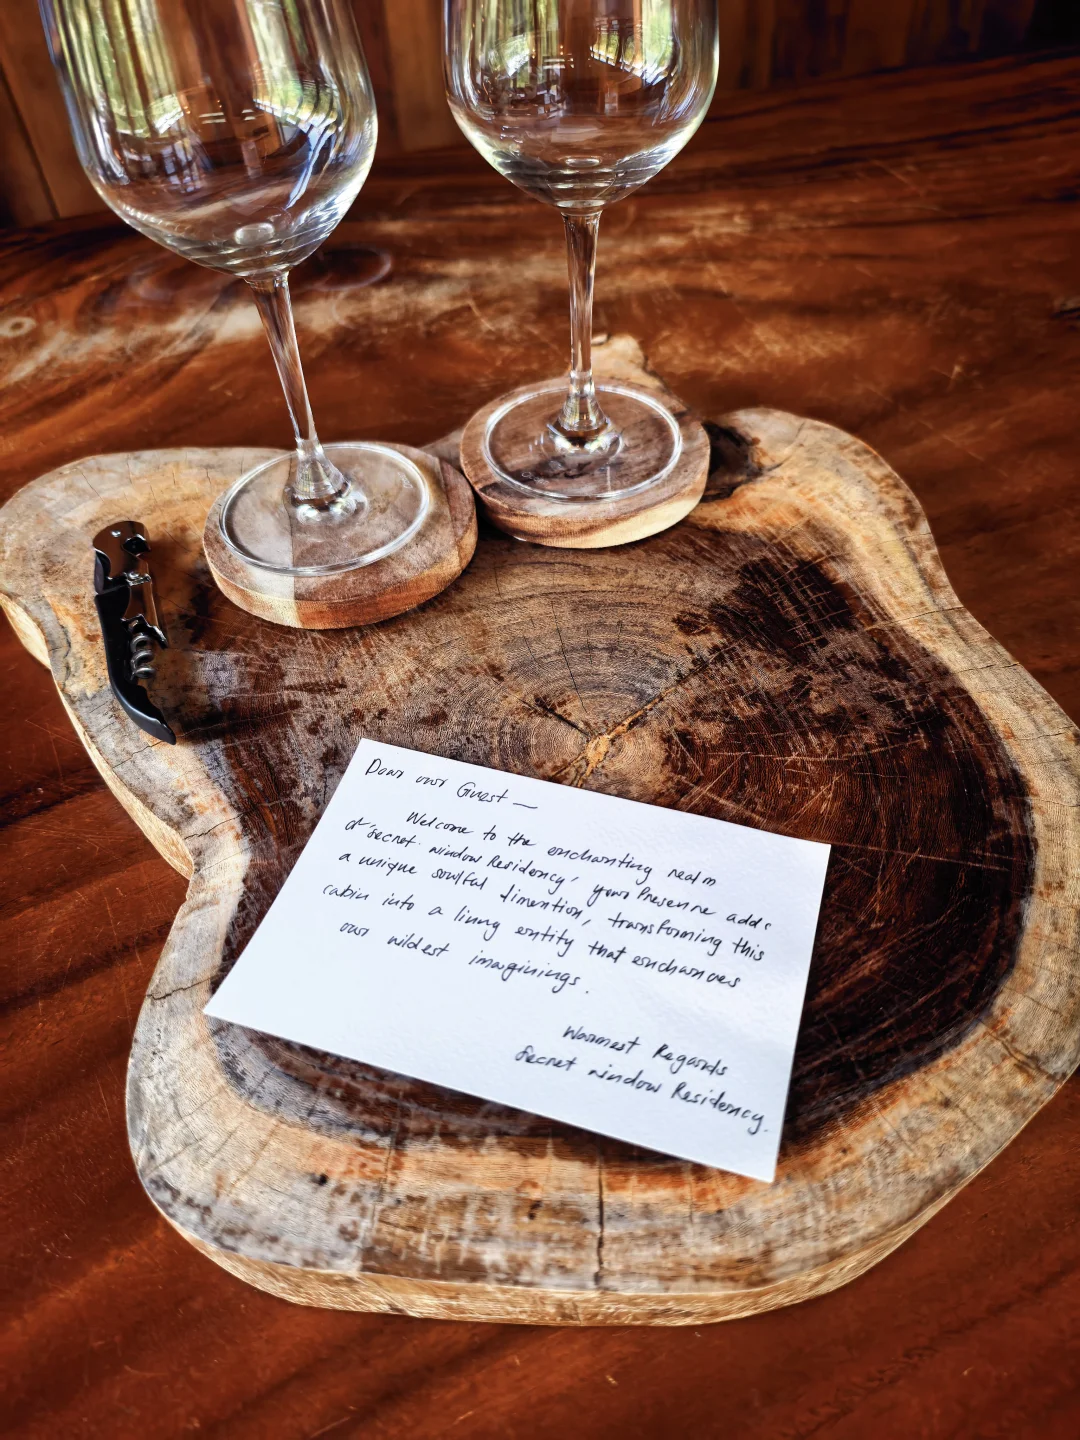 Dear our Guest —
Welcome to the enchanting realm
of "Secret window Residency," your Presenne adds
a unique soulful dimention, transforming this
cabin into a living entity that enchances
our wildest imaginings.
Warmest Regards
Secret window Residency.